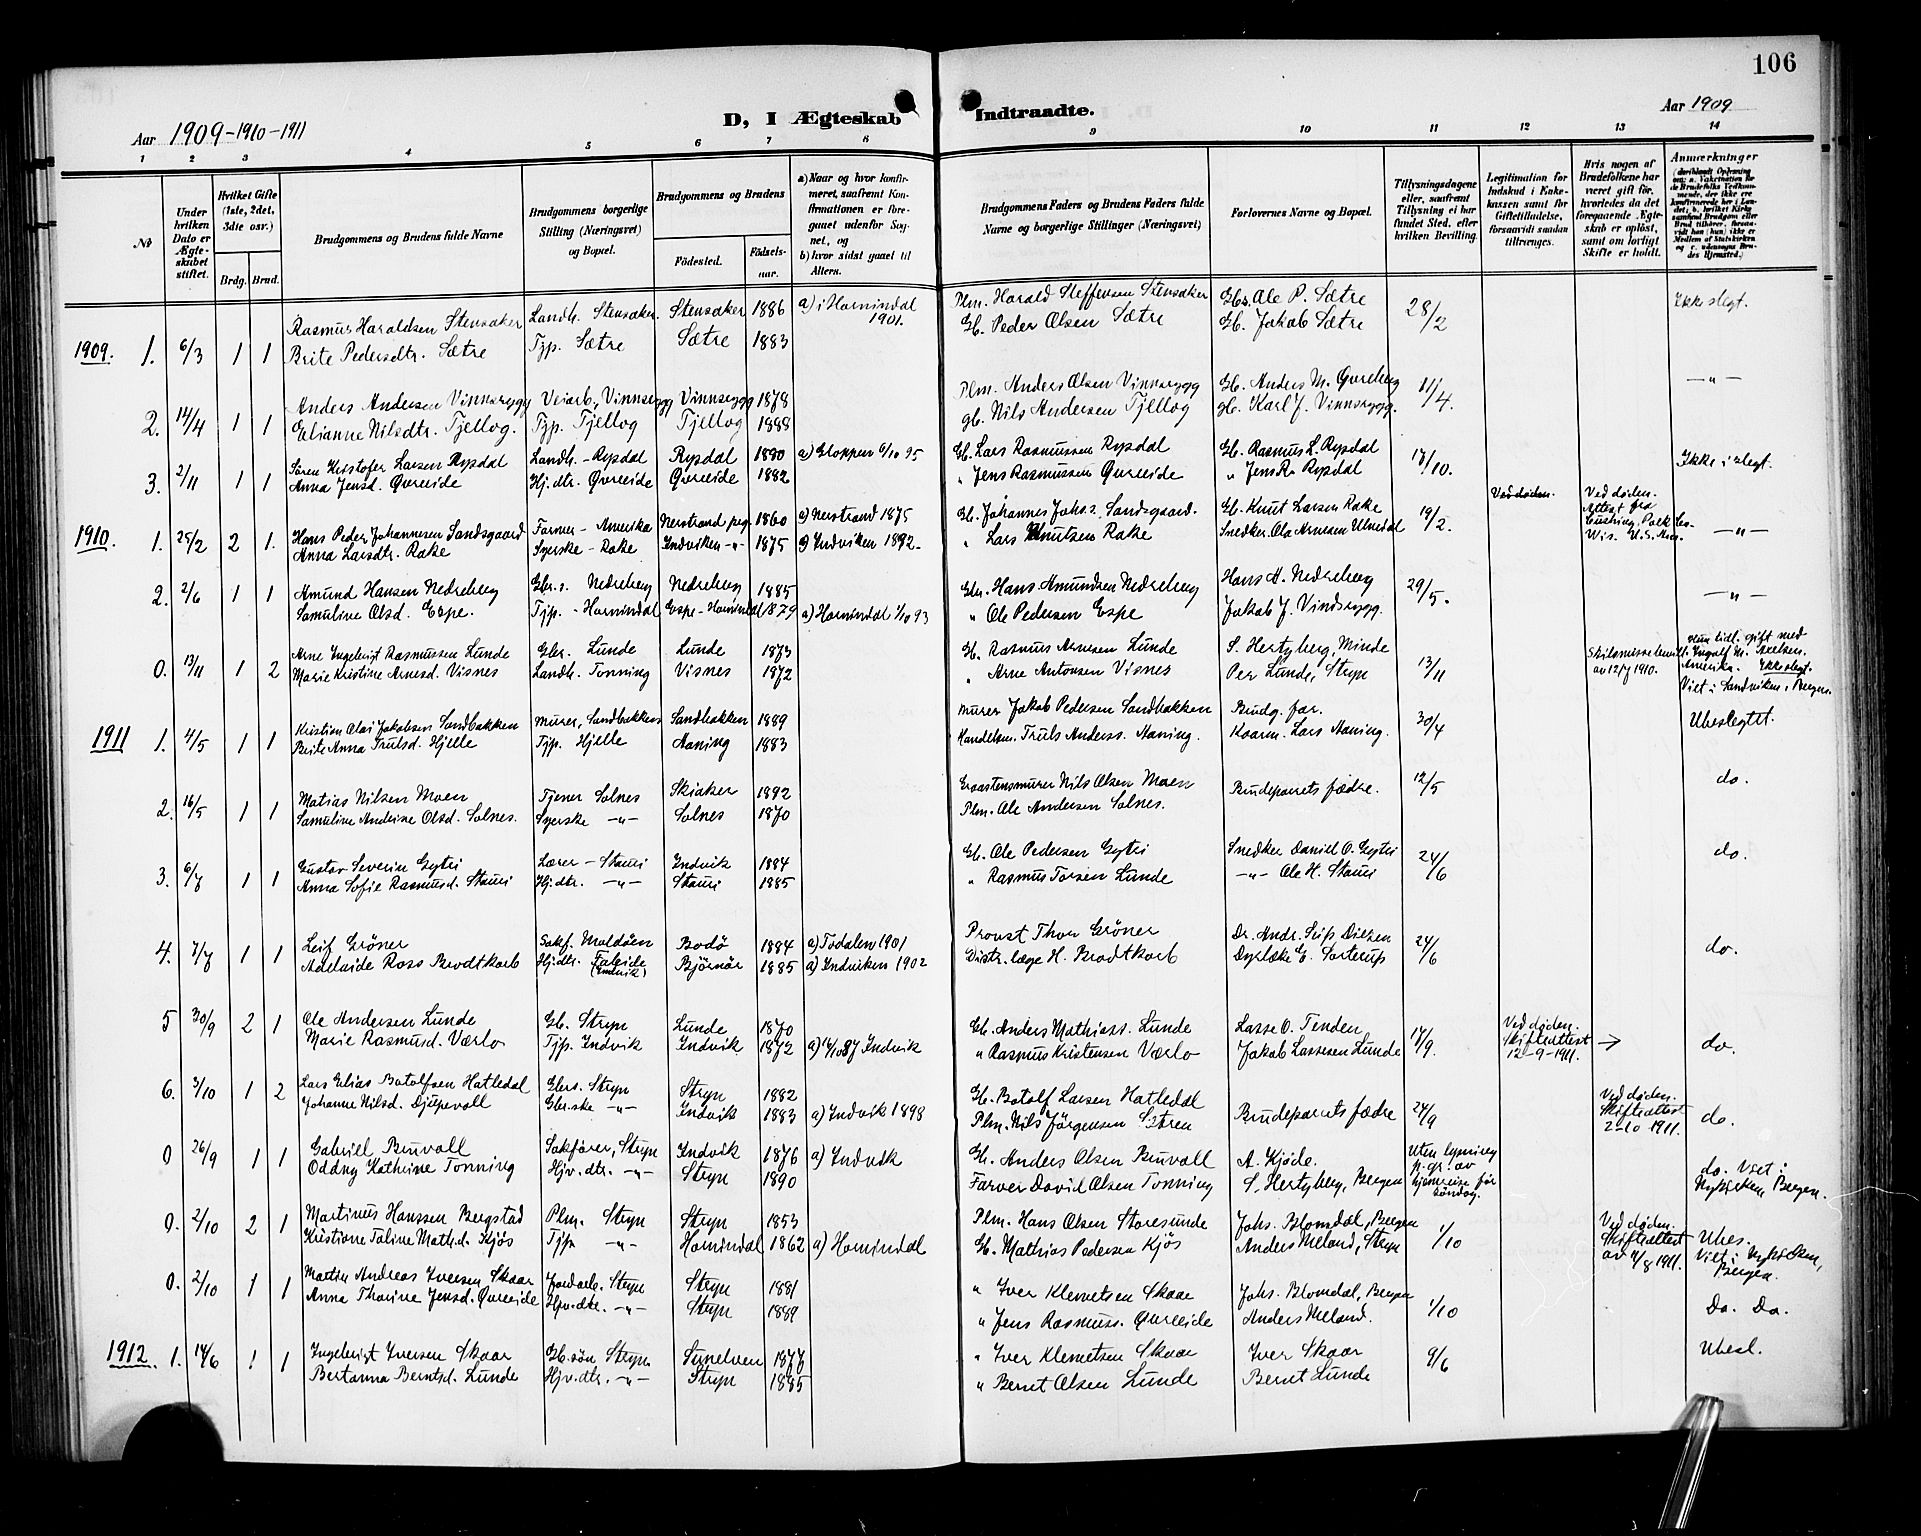 106
D, I Ægteskab Indtraadte.
Aar 1909-1910-1911
Aar 1909
1 2 3 4 5 6 7 8 9 10 11 12 13 14
No
Under hvilken Dato er Ægteskabet stiftet.
Hvilket Gifte (1ste, 2det, 3die osv.)
Brdg. Brud.
Brudgommens og Brudens fulde Navne
Brudgommens borgerlige Stilling (Næringsvei) og Bopæl.
Brudgommens og Brudens
Födested.
Födselsaar.
a) Naar og hvor konfirmeret, saafremt Konfirmationen er foregaaet udenfor Sognet, og
b) hvor sidst gaaet til Alters.
Brudgommens Faders og Brudens Faders fulde Navne og borgerlige Stillinger (Næringsvei)
Forlovernes Navne og Bopæl.
Tillysningsdagene eller, saafremt Tillysning ei har fundet Sted, efter hvilken Bevilling.
Legitimation for Indskud i Enkekassen samt for Giftetilladelse, forsaavidt saadan tiltrænges.
Hvis nogen af Brudefolkene har været gift för, hvorledes da det foregaaende Ægteskab er oplöst, samt om lovligt Skifte er holdt.
Anmærkninger
1909. 1. 6/3 1 1 Rasmus Haraldsen Stensaker Landh. Stensaker. Stensaker 1886 a) i Hornindal 1901. Plm. Harald Steffensen Stensaker Gbr. Ole P. Sætre 28/2 Ikke slegt.
Brite Pedersdtr. Sætre Tjp. Sætre Sætre 1883 Gb. Peder Olsen Sætre Gb. Jakob Sætre
2. 14/4 1 1 Anders Andersen Vinnsrygg Veiarb., Vinnsrygg Vinnsrygg 1878 Plm. Anders Olsen Vinnsrygg Gb. Anders M. Qvreberg 11/4. -"-
Elianne Nilsdtr. Tjellog. Tjp. Tjellog Tjellog 1888 Gb. Nils Andersen Tjellog Gb. Karl J. Vinnsrygg.
3. 2/11 1 1 Sören Kristofer Larsen Rypdal Landh. - Rypdal Rypdal 1880 a) Gloppen 6/10 95 Gb. Lars Rasmussen Rypdal Gb. Rasmus L. Rypdal 17/10. Ikke i slegt.
Anna Jensd. Qvreeide Hj. dtr. Qvreeide Qvreeide 1882 " Jens Rasmussen Qvreeide " Jens R. Rypdal
1910. 1. 25/2 2 1. Hans Peder Johannesen Sandsgaard Farmer - Amerika Nerstrand peg. 1860 a) Nerstrand 1875 Gb. Johannes Johs.s. Sandsgaard. Gb. Knut Larsen Rake 19/2. Ved döden. Ved döden. Attest fra Cushing, Polk Co. Wis. U.S. Am. -"-
Anna Larsdtr. Rake Syerske - Rake Indviken -"- 1875 a) Indviken 1892. " Lars Knutsen Rake Snedker Ola Arnesen Ulvedal
2. 2/6 1 1 Amund Hansen Nedreberg Gbr.s. Nedreberg Nedreberg 1885 Gbr. Hans Amundsen Nedreberg Hans A. Nedreberg 29/5. -"-
Samuline Olsd. Espe. Tjp. - Hornindal Espe - Hornindal 1879 a) Hornindal 1/10 93 " Ole Pedersen Espe Jakob J. Vindsrygg.
0. 13/11 1 2 Arne Ingebrigt Rasmussen Lunde Gbr. Lunde Lunde 1873 Gb. Rasmus Arnesen Lunde S. Hertzberg, Minde 13/11 Skilsmissebevill. av 12/7 1910. Hun tidl. gift med Ingolf M. Neelsen. Amerika. Ikke slegt. Viet i Sandviken i Bergen.
Marie Kristine Arnesd. Visnes Landh. Tonning Visnes 1872 " Arne Antonsen Visnes Per Lunde, Stryn
1911 1. 4/5 1 1 Kristian Olai Jakobsen Sandbakken Murer, Sandbakken Sandbakken 1889 Murer Jakob Pedersen Sandbakken Brudg. far. 30/4 Ubeslegtet.
Brite Anna Trulsd. Hjelle Tjp. Hjelle Aaning 1883 Handelsm. Truls Anderss. Aaning. Kaarm. Lars Aaning.
2. 16/5 1 1 Matias Nilsen Moen Tjener Solnes Skiaker 1892 Graastensmurer Nils Olsen Moen Brudeparrets fædre. 12/5 do.
Samuline Andrine Olsd. Solnes. Syerske -"- Solnes 1870 Plm. Ole Andersen Solnes.
3. 6/7 1 1 Gustav Severin Gytri Lærer - Stauri Indvik 1884 Gb. Ole Pedersen Gytri Snedker Daniel O. Gytri 24/6 do.
Anna Sofie Rasmusd. Stauri Hj. dtr. -"- Stauri 1885 " Rasmus Torsen Lunde -"- Ole H. Stauri
4. 7/7 1 1 Leif Gröner Sakf. Moldöen Bodö 1884 a) Todalen 1901 Provst Thor Gröner Dr. Andr. Seip Dietzen 24/6 do.
Adelaide Ross Brodtkorb Hj. dtr. Faleide (Indvik) Björnör 1885 a) Indviken 1902 Distr. læge H. Brodtkorb Dyrlæke E. Sorterup
5 30/9 2 1 Ole Andersen Lunde Gb. Stryn Lunde 1870 Gb. Anders Mathiass. Lunde Lasse O. Tenden 17/9. Ved döden. Skifteattest 12-9-1911. → do.
Marie Rasmusd. Værlo Tjp. Indvik Indvik 1872 a) 16/10 87 Indvik " Rasmus Kristensen Værlo Jakob Lassesen Lunde
6. 3/10 1 2 Lars Elias Botolfsen Hatledal Gbrs. Stryn Stryn 1882 Gb. Botolf Larsen Hatledal Brudeparrets fædre 24/9 Ved döden. Skifteattest 2-10 1911. do.
Johanne Nilsd. Djupevoll Gbr.ske -"- Indvik 1883 a) Indvik 1898 Plm. Nils Jörgensen Sætren
0 26/9 1 1 Gabriel Bruvoll Sakförer, Stryn Indvik 1876 a) Indvik Gb. Anders Olsen Bruvoll A. Kjöde. Uten lysning p. gr. av hjemreise för söndag. do. Viet i Nykirken, Bergen.
Oddny Kathrine Tonning Hjv. dtr. -"- Stryn 1890 Farver David Olsen Tonning S. Hertzberg, Bergen
0. 2/10 2 1 Martinus Hanssen Bergstad Plm. Stryn Stryn 1853 Plm. Hans Olsen Storesunde Johs. Blomdal, Bergen 1/10 Ved döden. Skifteattest av 11/8 1911. Ubes. Viet i Nykirken, Bergen.
Kristiane Taline Math.d. Kjös Tjp -"- Hornindal 1862 a) Hornindal Gb. Mathias Pedersen Kjös Anders Meland, Stryn
0. 2/10 1 1 Martin Andreas Iversen Skaar Jordarb. Stryn Stryn 1881 " Iver Klemetsen Skaar Johs. Blomdal, Bergen 1/10 Do. Do.
Anna Thorine Jensd. Qvreeide Hjv. dtr. -"- Stryn 1889 " Jens Rasmuss. Qvreeide Anders Meland.
1912. 1. 14/6 1 1 Ingebrigt Iversen Skaar Gb. sön Stryn. Sunelven 1877 " Iver Klemetsen Skaar Iver Skaar 9/6 Ubesl.
Bertanna Berntsd. Lunde Hjv. dtr. -"- Stryn 1885 " Bernt Olsen Lunde Bernt Lunde